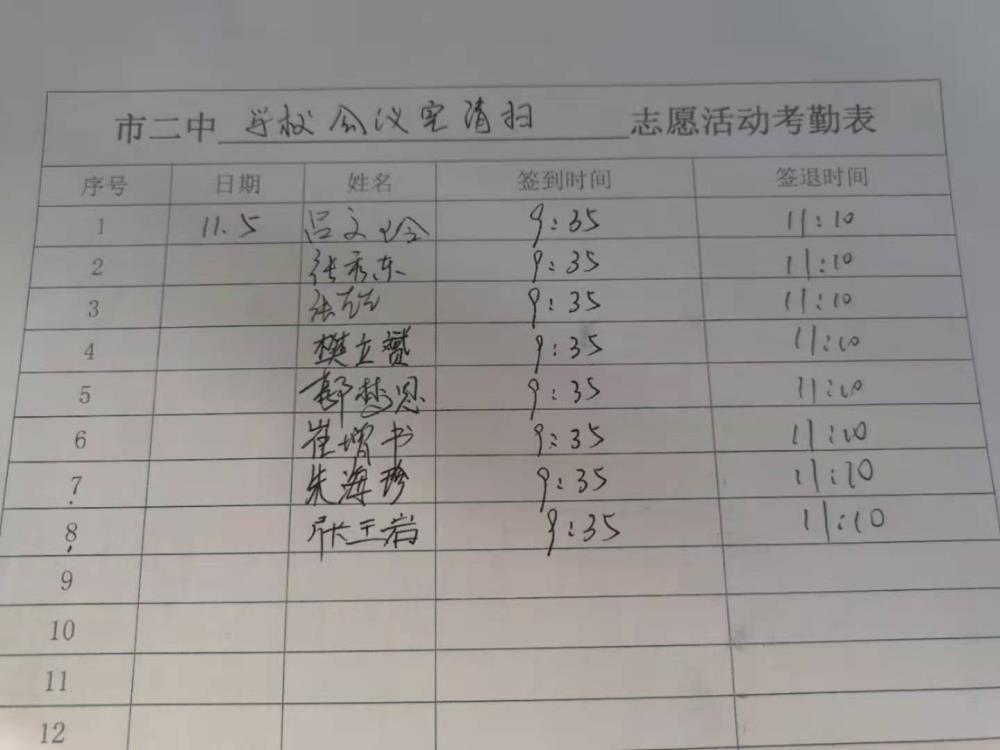 市二中 学校会议室清扫 志愿活动考勤表
序号 日期 姓名 签到时间 签退时间
1 11.5 吕文玲 9:35 11:10
2 张秀东 9:35 11:10
3 张 9:35 11:10
4 樊立赟 9:35 11:10
5 鄢梦恩 9:35 11:10
6 崔增书 9:35 11:10
7 朱海珍 9:35 11:10
8 张玉岩 9:35 11:10
9
10
11
12